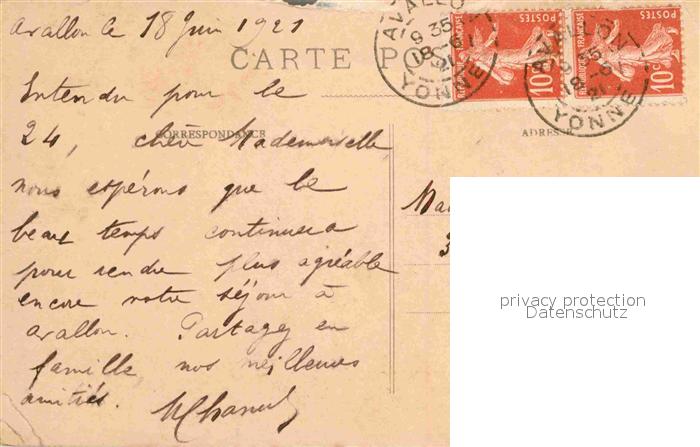 Avallon le 18 Juin 1921
CARTE PO
AVALLON
9 35
18 -6
21
YONNE
POSTES
RÉPUBLIQUE FRANÇAISE
10c
AVALLON
9 35
18 -6
21
YONNE
POSTES
RÉPUBLIQUE FRANÇAISE
10c
Entendu pour le
CORRESPONDANCE
ADRESSE
24, chère Mademoiselle
nous espérons que le
beau temps continuera
pour rendre plus agréable
encore votre séjour à
avallon. Partagez en
famille, nos meilleures
amitiés.
Ma
3
privacy protection
Datenschutz